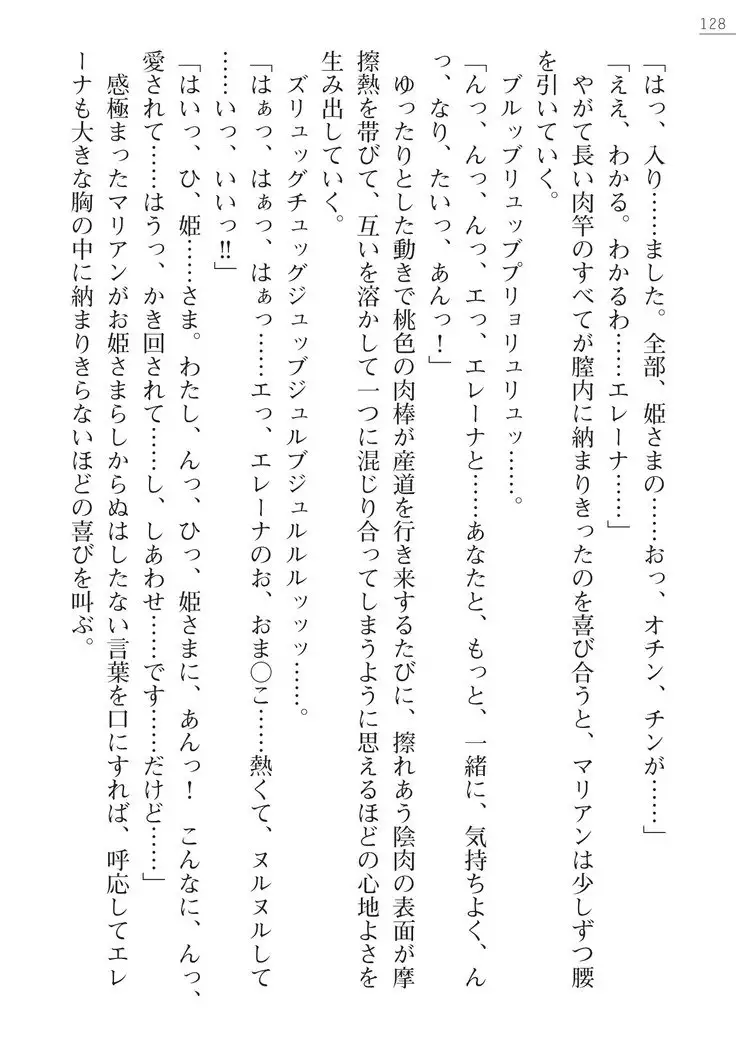 128
「はっ、入り……ました。全部、姫さまの……おっ、オチン、チンが……」
「ええ、わかる。わかるわ……エレーナ……」
やがて長い肉竿のすべてが膣内に納まりきったのを喜び合うと、マリアンは少しずつ腰
を引いていく。
ブルッブリュッブプリョリュリュッ……。
「んっ、んっ、んっ、エっ、エレーナと……あなたと、もっと、一緒に、気持ちよく、ん
っ、なり、たいっ、あんっ！」
ゆったりとした動きで桃色の肉棒が産道を行き来するたびに、擦れあう陰肉の表面が摩
擦熱を帯びて、互いを溶かして一つに混じり合ってしまうように思えるほどの心地よさを
生み出していく。
ズリュッグチュッグジュッブジュルブジュルルルッッッ……。
「はぁっ、はぁっ、はぁっ……エっ、エレーナのお、おま〇こ……熱くて、ヌルヌルして
……いっ、いいっ!!」
「はいっ、ひ、姫……さま。わたし、んっ、ひっ、姫さまに、あんっ！　こんなに、んっ、
愛されて……はうっ、かき回されて……し、しあわせ……です……だけど……」
感極まったマリアンがお姫さまらしからぬはしたない言葉を口にすれば、呼応してエレ
ーナも大きな胸の中に納まりきらないほどの喜びを叫ぶ。